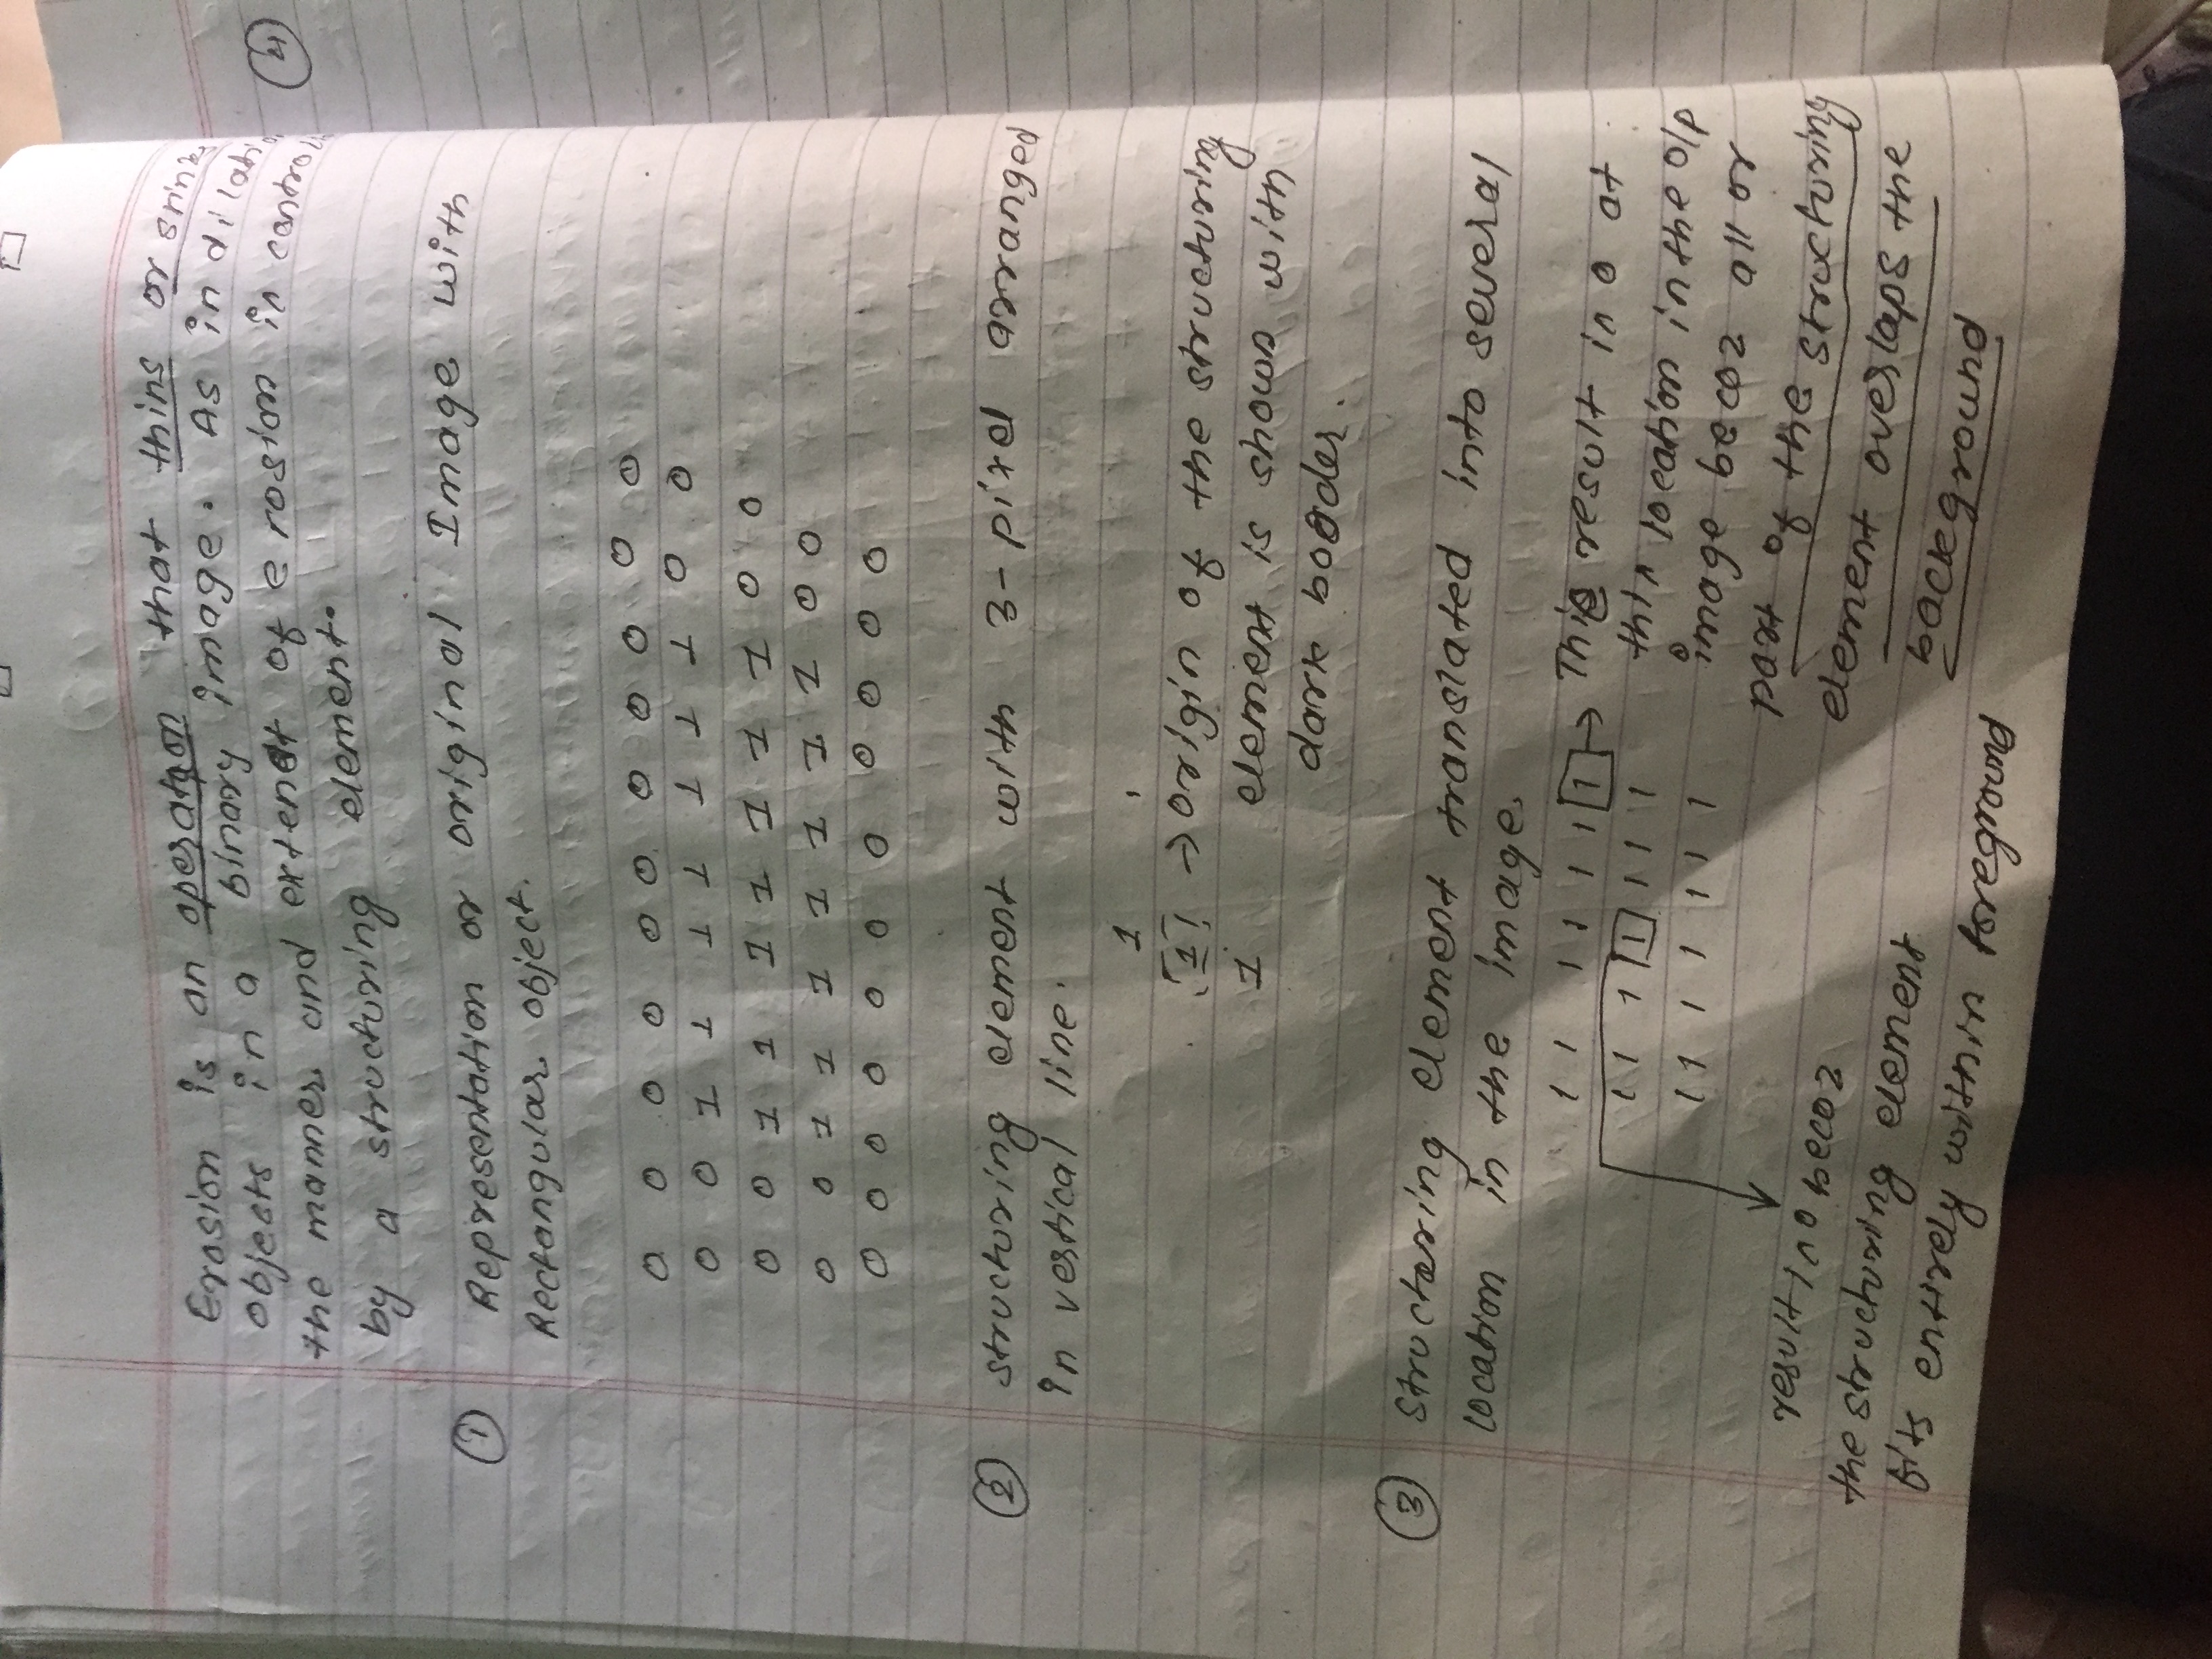 Erosion is an operation that thins or srinks
objects in a binary image. As in dilati
the manner and extent of erosion is control
by a structuring element.
① Representation or original Image with
Rectangular object.
0 0 0 0 0 0 0 0 0 0 0
0 0 1 1 1 1 1 1 1 0 0
0 0 1 1 1 1 1 1 1 0 0
0 0 1 1 1 1 1 1 1 0 0
0 0 0 0 0 0 0 0 0 0 0
② structuring element with 3-pixel arranged
in vertical line.
1
1 → origin of the structuring
1 element is shown with
dark booder.
③ structuring element translated into several
location in the image.
1 1 1 1 1 1 1 → This result in 0 at
1 1 1 1 1 1 1 this location in the o/p
1 1 1 1 1 1 1 image becoz all or
part of the structuring
element overlaps the
background
result in 0 becoz
the structuring element
fits entirely within foreground
④